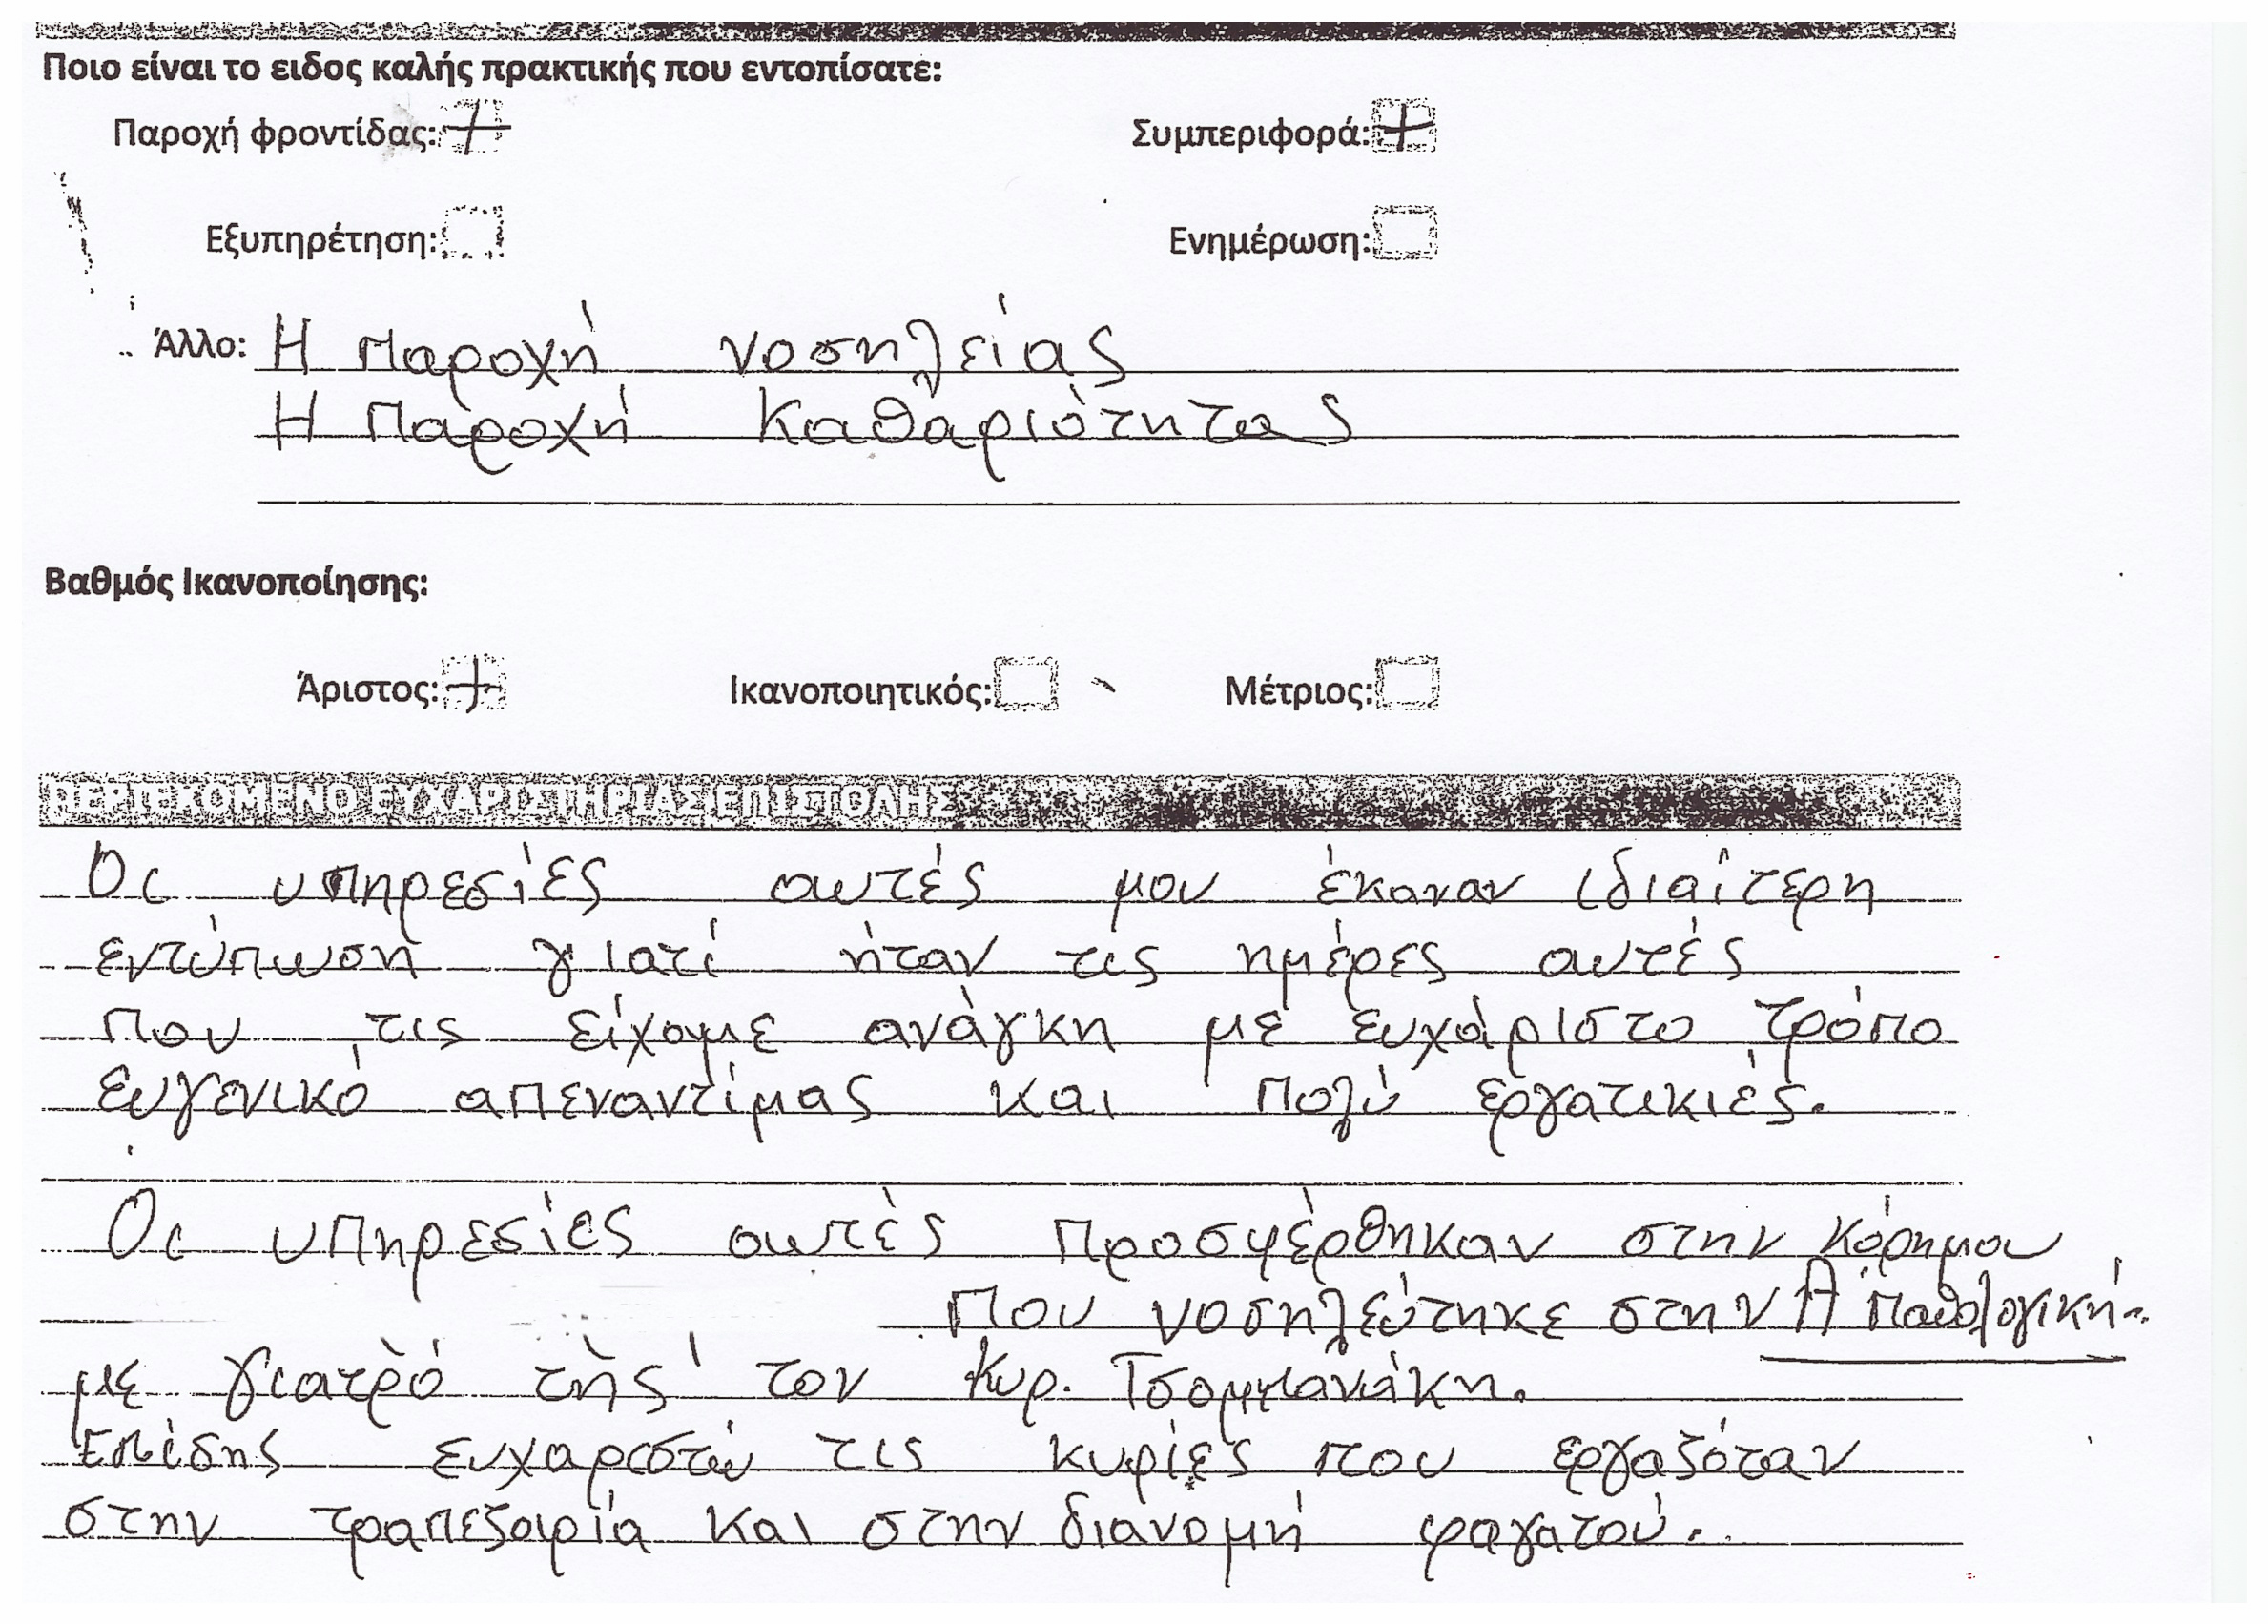 Ποιο είναι το ειδος καλής πρακτικής που εντοπίσατε:
Παροχή φροντίδας: Συμπεριφορά:
Εξυπηρέτηση: Ενημέρωση:
Άλλο: Η παροχή νοσηλείας
Η Παροχή καθαριότητας
Βαθμός Ικανοποίησης:
Άριστος: Ικανοποιητικός: Μέτριος:
ΠΕΡΙΕΚΟΜΕΝΟ ΕΥΧΑΡΙΣΤΗΡΙΑΣ ΕΠΙΣΤΟΛΗΣ
Οι υπηρεσίες αυτές μου έκαναν ιδιαίτερη
εντύπωση γιατί ήταν τις ημέρες αυτές
που τις είχομε ανάγκη με ευχάριστο τρόπο
ευγενικό απεναντίμας και πολύ εργατικιές.
Οι υπηρεσίες αυτές προσφέρθηκαν στην κόρημου
που νοσηλεύτηκε στην Α΄ Παθολογική.
με γιατρό τής τον κυρ.
Επίδης ευχαριστώ τις κυρίες που εργαζόταν
στην τραπεζαιρία και στην διανομή φαγατού.